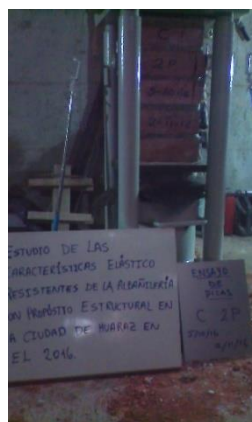 C 1
2P
ESTUDIO DE LAS
CARACTERÍSTICAS ELÁSTICO
RESISTENTES DE LA ALBAÑILERÍA
CON PROPÓSITO ESTRUCTURAL EN
LA CIUDAD DE HUARAZ EN
EL 2016
ENSAYO
DE
PILAS
C 2P